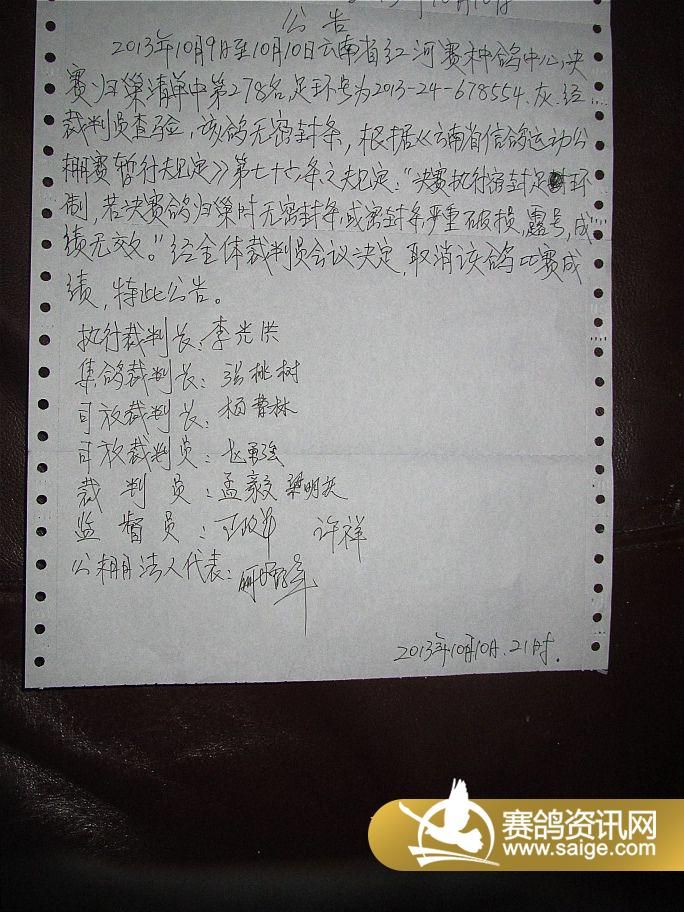 公告
2013年10月9日至10月10日云南省红河赛种鸽中心决
赛归巢清单中第278名,足环号为2013-24-678554.灰.经
裁判员查验,该鸽无密封条,根据《云南省信鸽运动公
棚赛暂行规定》第七十六条之规定:"决赛执行密封足环
制,若决赛鸽归巢时无密封条,或密封条严重破损,露号,成
绩无效。"经全体裁判员会议决定,取消该鸽比赛成
绩,特此公告。
执行裁判长:李光洪
集鸽裁判长:张桃树
司放裁判长:杨
司放裁判员:赵
裁判员:孟毅 梁明
监督员:王 许祥
公棚法人代表:
2013年10月10日.21时.
赛鸽资讯网
www.saige.com